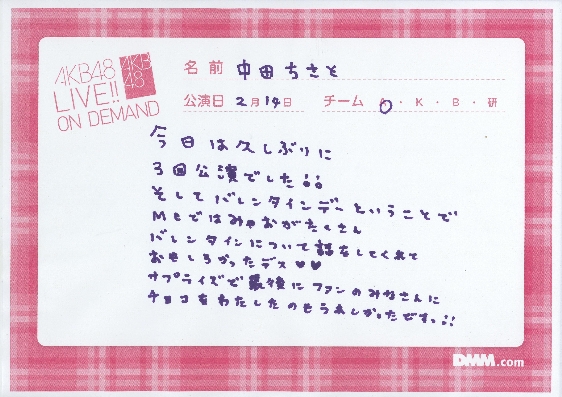 AKB48
LIVE!!
ON DEMAND
AKB
48
名前 中田ちさと
公演日 2月14日 チーム A・K・B・研
今日は久しぶりに
3回公演でした!!
そしてバレンタインデーということで
MCではみゃおがたくさん
バレンタインについて話をしてくれて
おもしろかったデス♥♥
サプライズで最後にファンのみなさんに
チョコをわたしたのもうれしかったですっ!!
DMM.com